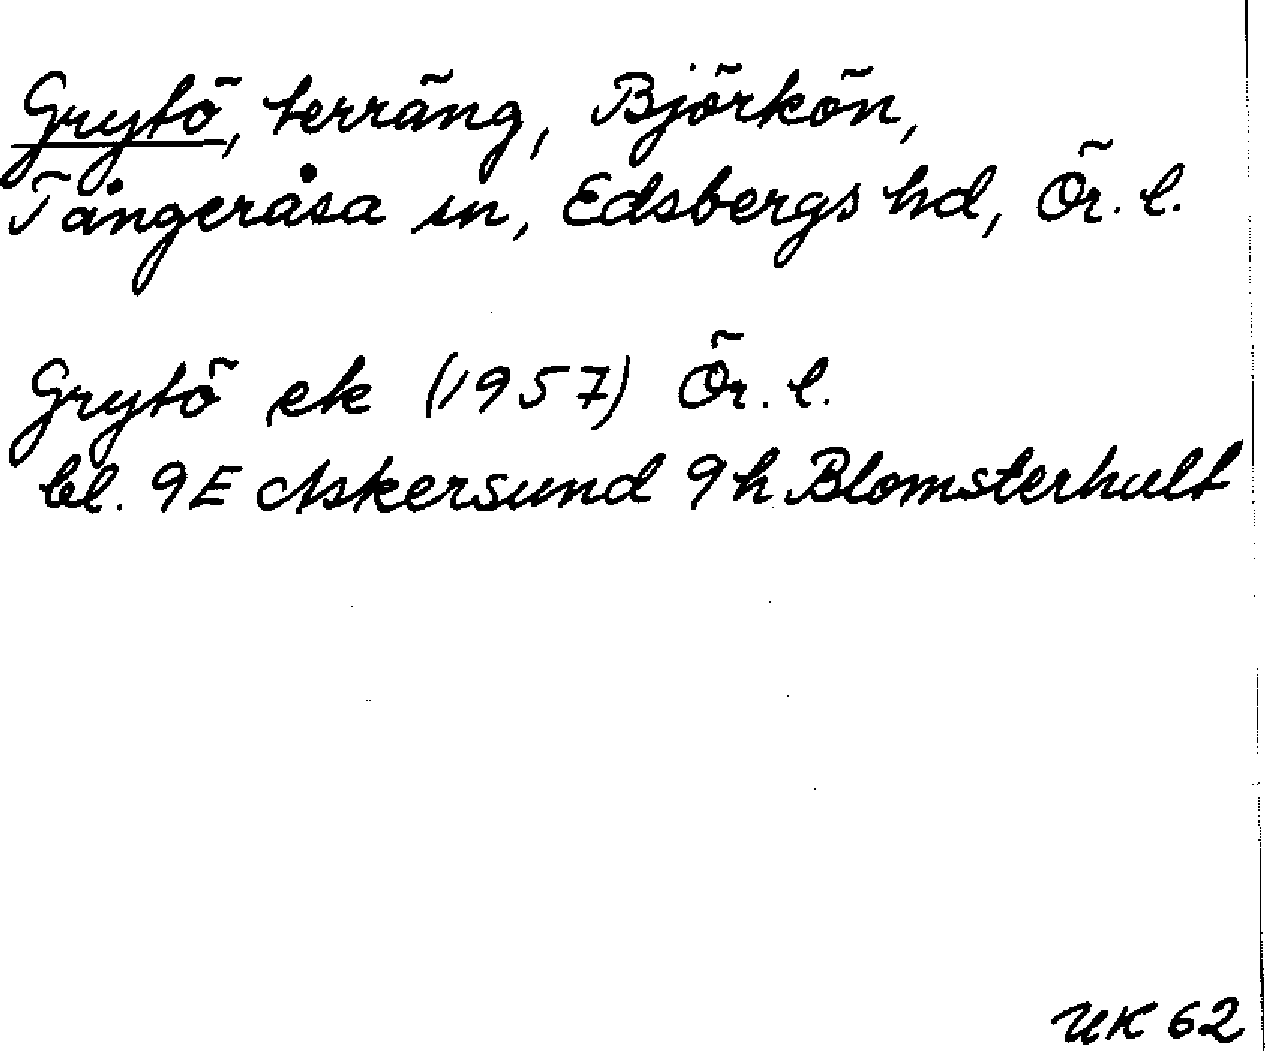 Grytö, terräng, Björkön,
Tångeråsa sn, Edsbergs hd, Ör. l.
Grytö ek (1957) Ör. l.
bl. 9E Askersund 9h Blomsterhult
UK 62